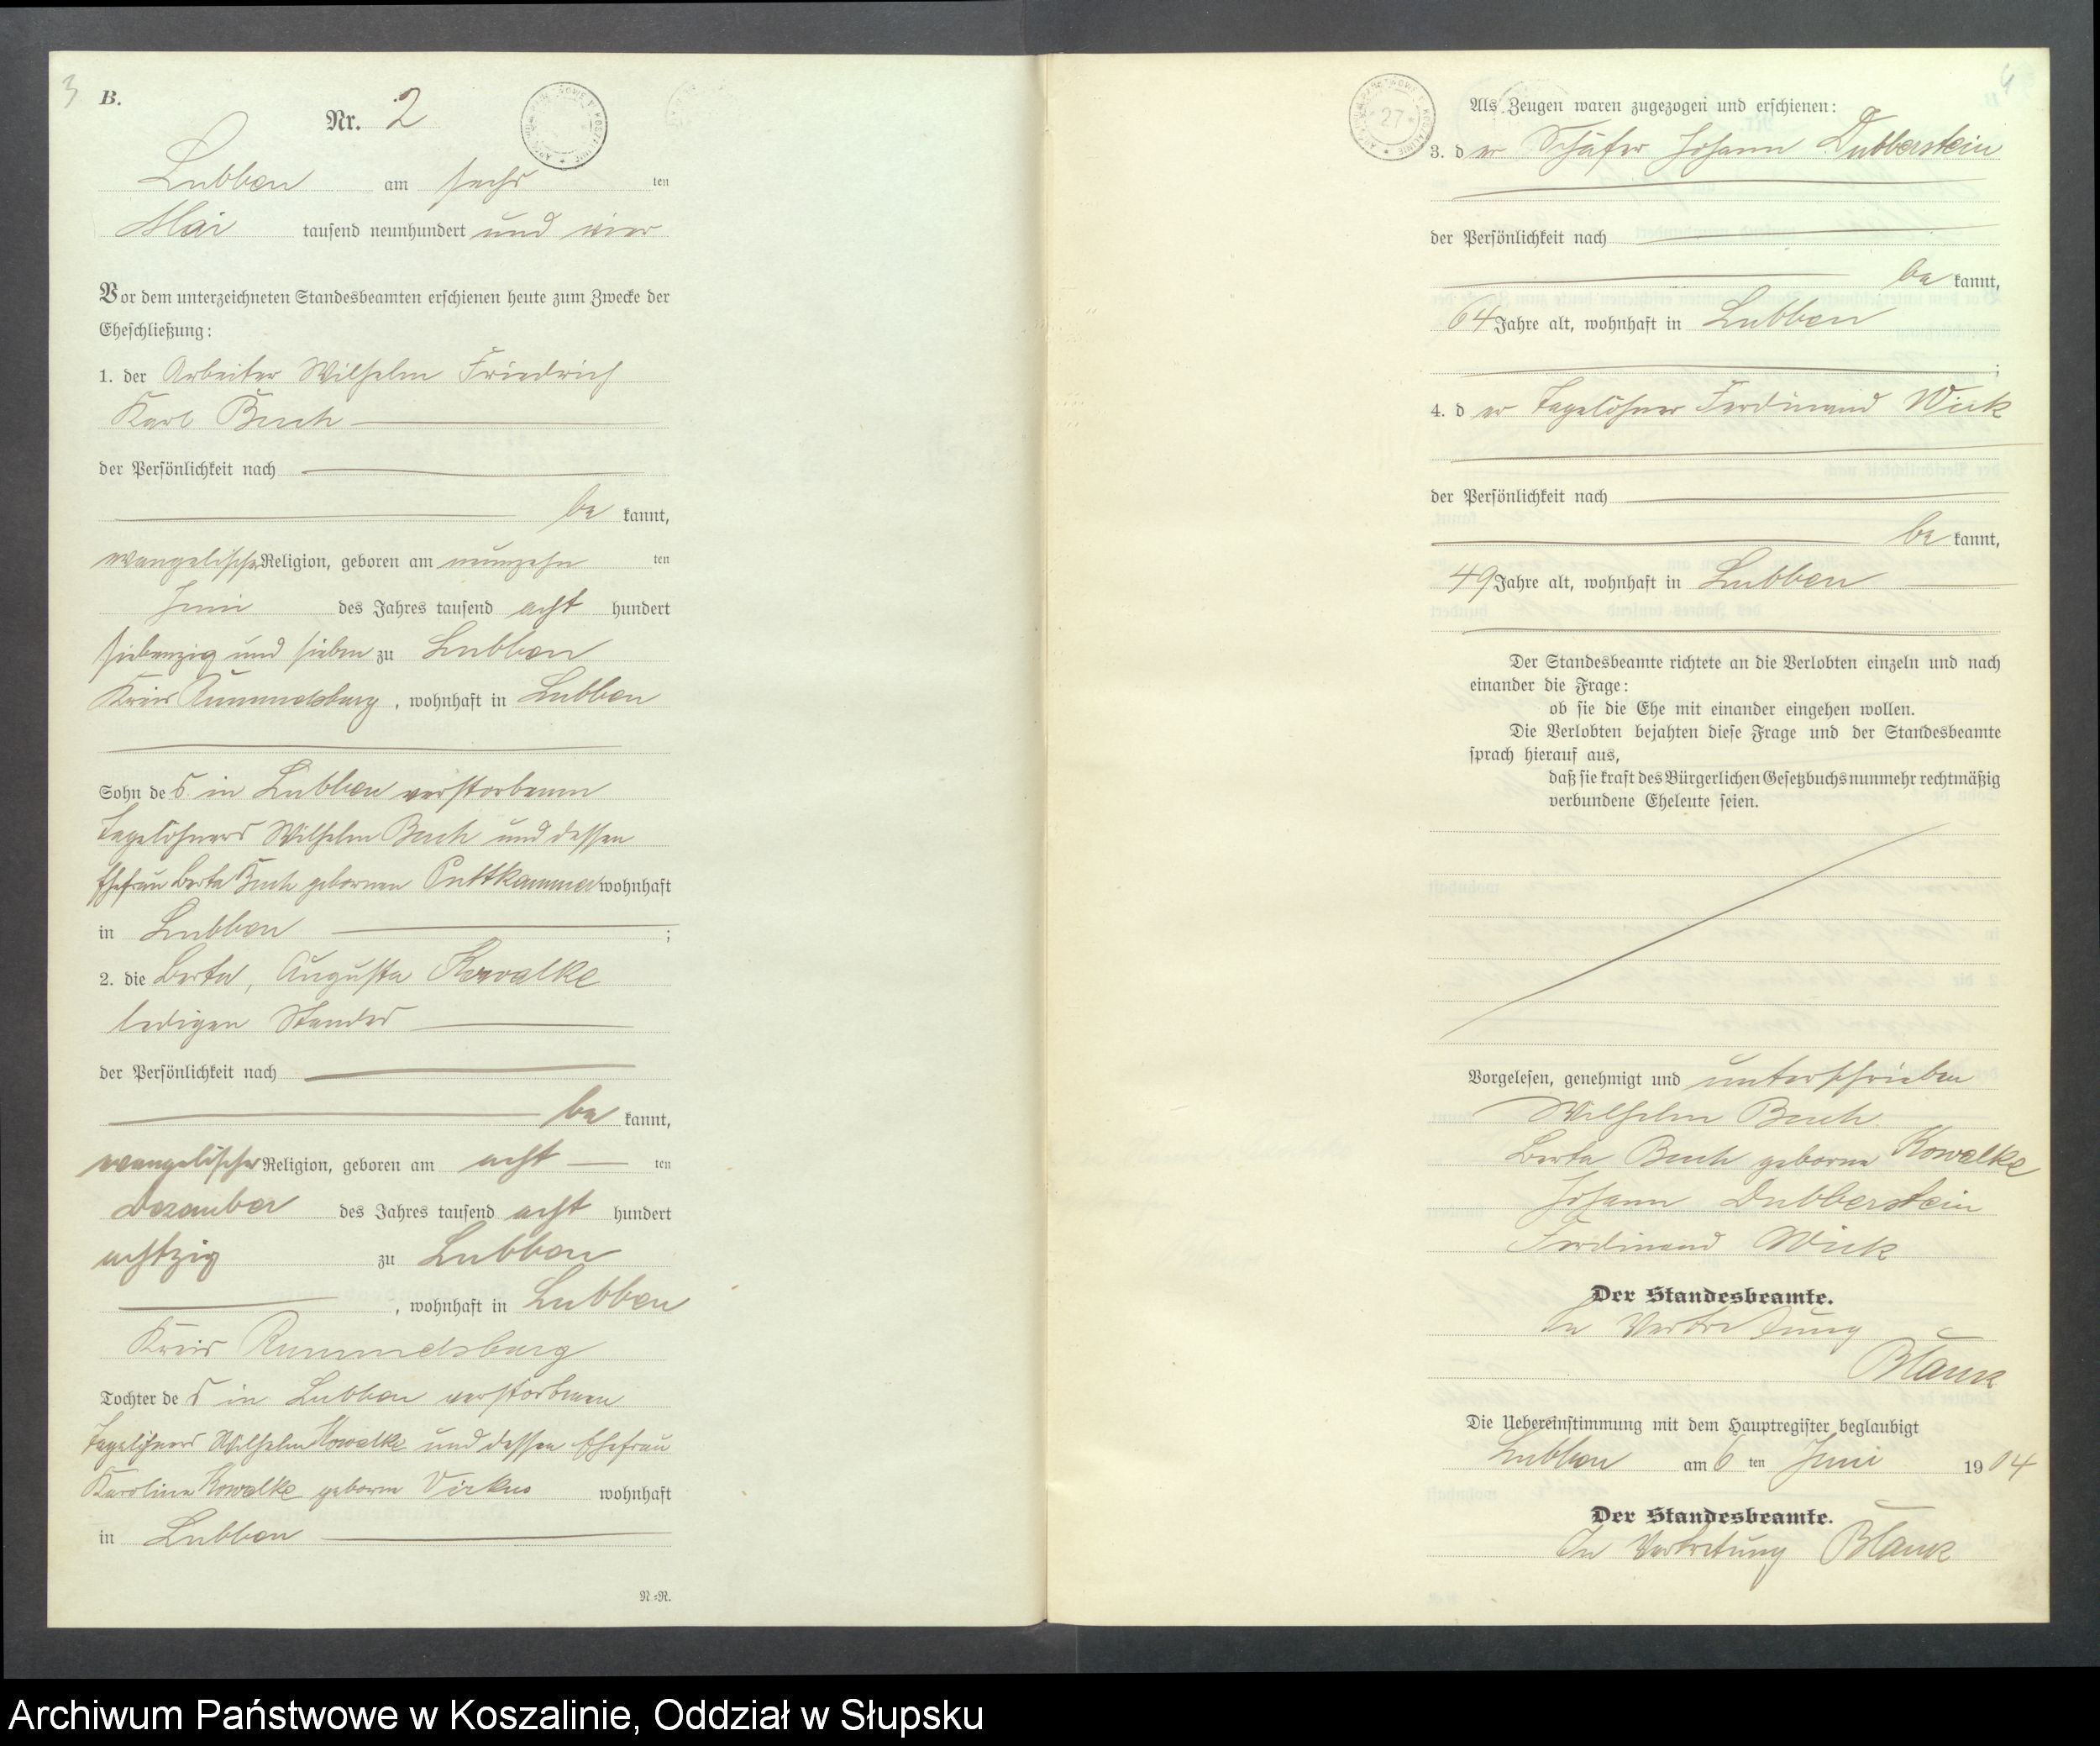 3
B.
Nr. 2
Lubben am sechs ten
Mai tausend neunhundert und vier
Vor dem unterzeichneten Standesbeamten erschienen heute zum Zwecke der
Eheschließung:
1. der Arbeiter Wilhelm Friedrich
Karl Buch
der Persönlichkeit nach
be kannt,
evangelischer Religion, geboren am neunzehn ten
Juni des Jahres tausend acht hundert
siebenzig und sieben zu Lubben
Kreis Rummelsburg, wohnhaft in Lubben
Sohn des in Lubben verstorbenen
Tagelöhners Wilhelm Buch und dessen
Ehefrau Berta Buch gebornen Puttkammer wohnhaft
in Lubben ;
2. die Berta, Augusta Kowalke
ledigen Standes
der Persönlichkeit nach
be kannt,
evangelischer Religion, geboren am acht ten
Dezember des Jahres tausend acht hundert
achtzig zu Lubben
, wohnhaft in Lubben
Kreis Rummelsburg
Tochter des in Lubben verstorbenen
Tagelöhners Wilhelm Kowalke und dessen Ehefrau
Karoline Kowalke geborne Virkus wohnhaft
in Lubben
N.=R.
Als Zeugen waren zugezogen und erschienen:
3. der Schäfer Johann Dubberstein
der Persönlichkeit nach
be kannt,
64 Jahre alt, wohnhaft in Lubben
;
4. der Tagelöhner Ferdinand Wick
der Persönlichkeit nach
be kannt,
49 Jahre alt, wohnhaft in Lubben
Der Standesbeamte richtete an die Verlobten einzeln und nach
einander die Frage:
ob sie die Ehe mit einander eingehen wollen.
Die Verlobten bejahten diese Frage und der Standesbeamte
sprach hierauf aus,
daß sie kraft des Bürgerlichen Gesetzbuchs nunmehr rechtmäßig
verbundene Eheleute seien.
Vorgelesen, genehmigt und unterschrieben
Wilhelm Buch
Berta Buch geborne Kowalke
Johann Dubberstein
Ferdinand Wick
Der Standesbeamte.
In Vertretung
Blanck
Die Uebereinstimmung mit dem Hauptregister beglaubigt
Lubben am 6 ten Juni 1904
Der Standesbeamte.
In Vertretung Blanck
Archiwum Państwowe w Koszalinie, Oddział w Słupsku